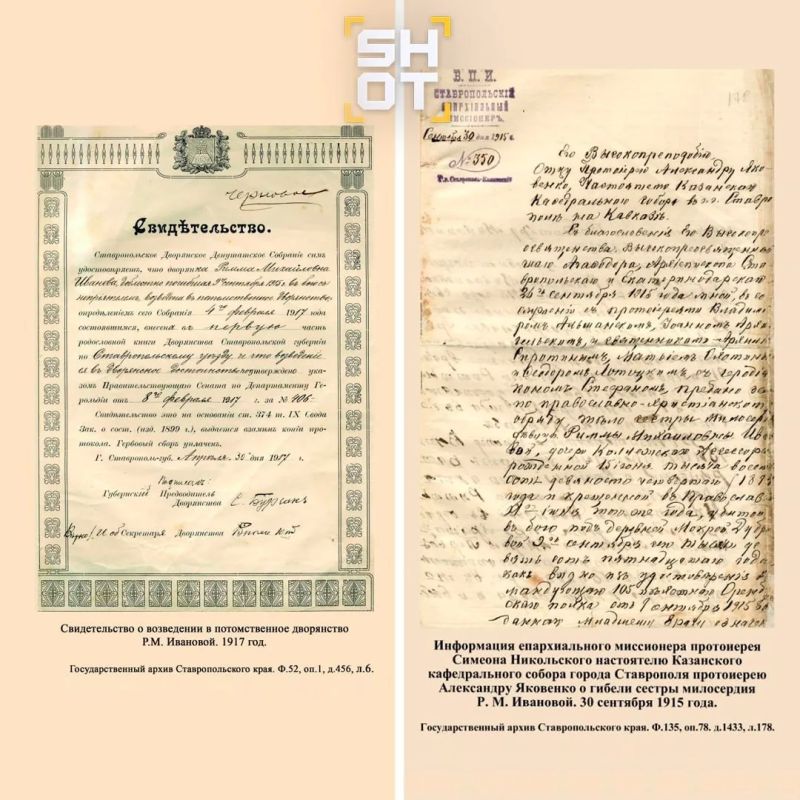 SHOT
Черновое
Свидѣтельство.
Ставропольское Дворянское Депутатское Собраніе симъ
удостовѣряетъ, что дворянка Римма Михайловна
Иванова, доблестно погибшая 9 сентября 1915 г. въ бою съ
непріятелемъ возведена въ потомственное дворянство,
опредѣленіемъ сего Собранія 4го февраля 1917 года
состоявшимся, внесена въ первую часть
родословной книги Дворянства Ставропольской губерніи
по Ставропольскому уѣзду и что возведеніе
ея въ дворянское достоинство утверждено
указомъ Правительствующаго Сената по Департаменту Ге-
рольдіи отъ 8го февраля 1917 г. за № 406.
Свидѣтельство это на основаніи ст. 374 т. IX Свода
Зак. о сост. (изд. 1899 г.), выдается взамѣнъ копіи про-
токола. Гербовый сборъ уплаченъ.
Г. Ставрополь-губ. Апрѣля 30 дня 1917 г.
Губернскій Предводитель
Дворянства
Секретаря Дворянства
Свидетельство о возведении в потомственное дворянство
Р.М. Ивановой. 1917 год.
Государственный архив Ставропольского края. Ф.52, оп.1, д.456, л.6.
В. П. И.
СТАВРОПОЛЬСКІЙ
ЕПАРХІАЛЬНЫЙ
МИССІОНЕРЪ.
Сентября 30 дня 1915 г.
№ 350
178
Его Высокопреподобію
Отцу Протоіерею Александру Яко-
венко, Настоятелю Казанскаго
Каѳедральнаго Собора въ г. Ставро-
полѣ на Кавказѣ.
Съ благословенія Его Высокопре-
освященства Высокопреосвященнѣй-
шаго Агаѳодора, Архіепископа Ста-
вропольскаго и Екатеринодарскаго
24го сентября 1915 года мной, въ со-
служеніи съ протоіереями Владими-
ромъ Іоанномъ
и священниками
и
предано зе-
по православно-христіанскому
обряду тѣло сестры милосер-
дія Риммы Михайловны Ивано-
вой, дочери Коллежскаго Ассессора,
рожденной 15 іюня тысяча восемь-
сотъ девяносто четвертаго / 1894
года и крещенной въ Православіи
іюня того же года, убитой
въ бою подъ деревней Мокрой Дуб-
ровой 9го сентября тысяча де-
вятьсотъ пятнадцатаго года
какъ видно изъ удостовѣренія ко-
мандующаго 105 пѣхотнаго Оренбург-
скаго полка отъ сентября 1915
даннаго Младшему врачу
Информация епархиального миссионера протоиерея
Симеона Никольского настоятелю Казанского
кафедрального собора города Ставрополя протоиерею
Александру Яковенко о гибели сестры милосердия
Р. М. Ивановой. 30 сентября 1915 года.
Государственный архив Ставропольского края. Ф.135, оп.78. д.1433, л.178.